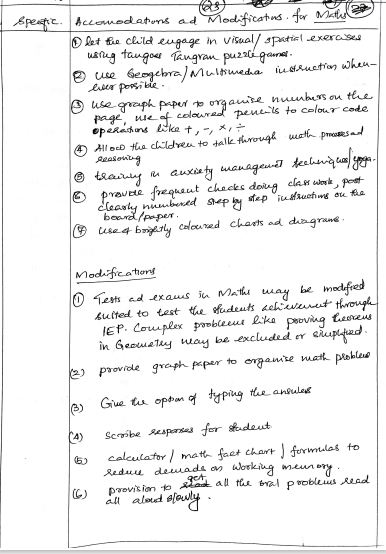 23
Specific. Accomodations ad Modifications. for Maths
① let the child engage in visual/spatial exercises
using tangoes Tangram puzzle games.
② use Geogebra/Multimedia instruction when-
ever possible.
③ use graph paper to organise numbers on the
page, use of coloured pencils to colour code
operations like +, -, x, ÷
④ Allow the children to talk through math process ad
reasoning
⑤ training in anxiety management techniques/yoga.
⑥ provide frequent checks doing class work, post
clearly numbered step by step instructions on the
board/paper.
⑦ use of brightly coloured charts ad diagrams.
Modifications
① Tests ad exams in Maths may be modified
suited to test the students achievement through
IEP. Complex problems like proving theorems
in Geometry may be excluded or simplified.
(2) provide graph paper to organise math problems
(3) Give the option of typing the answers
(4) scribe responses for student
(5) calculator / math fact chart / formulas to
reduce demands on working memory.
(6) provision to get all the oral problems read
all aloud slowly.